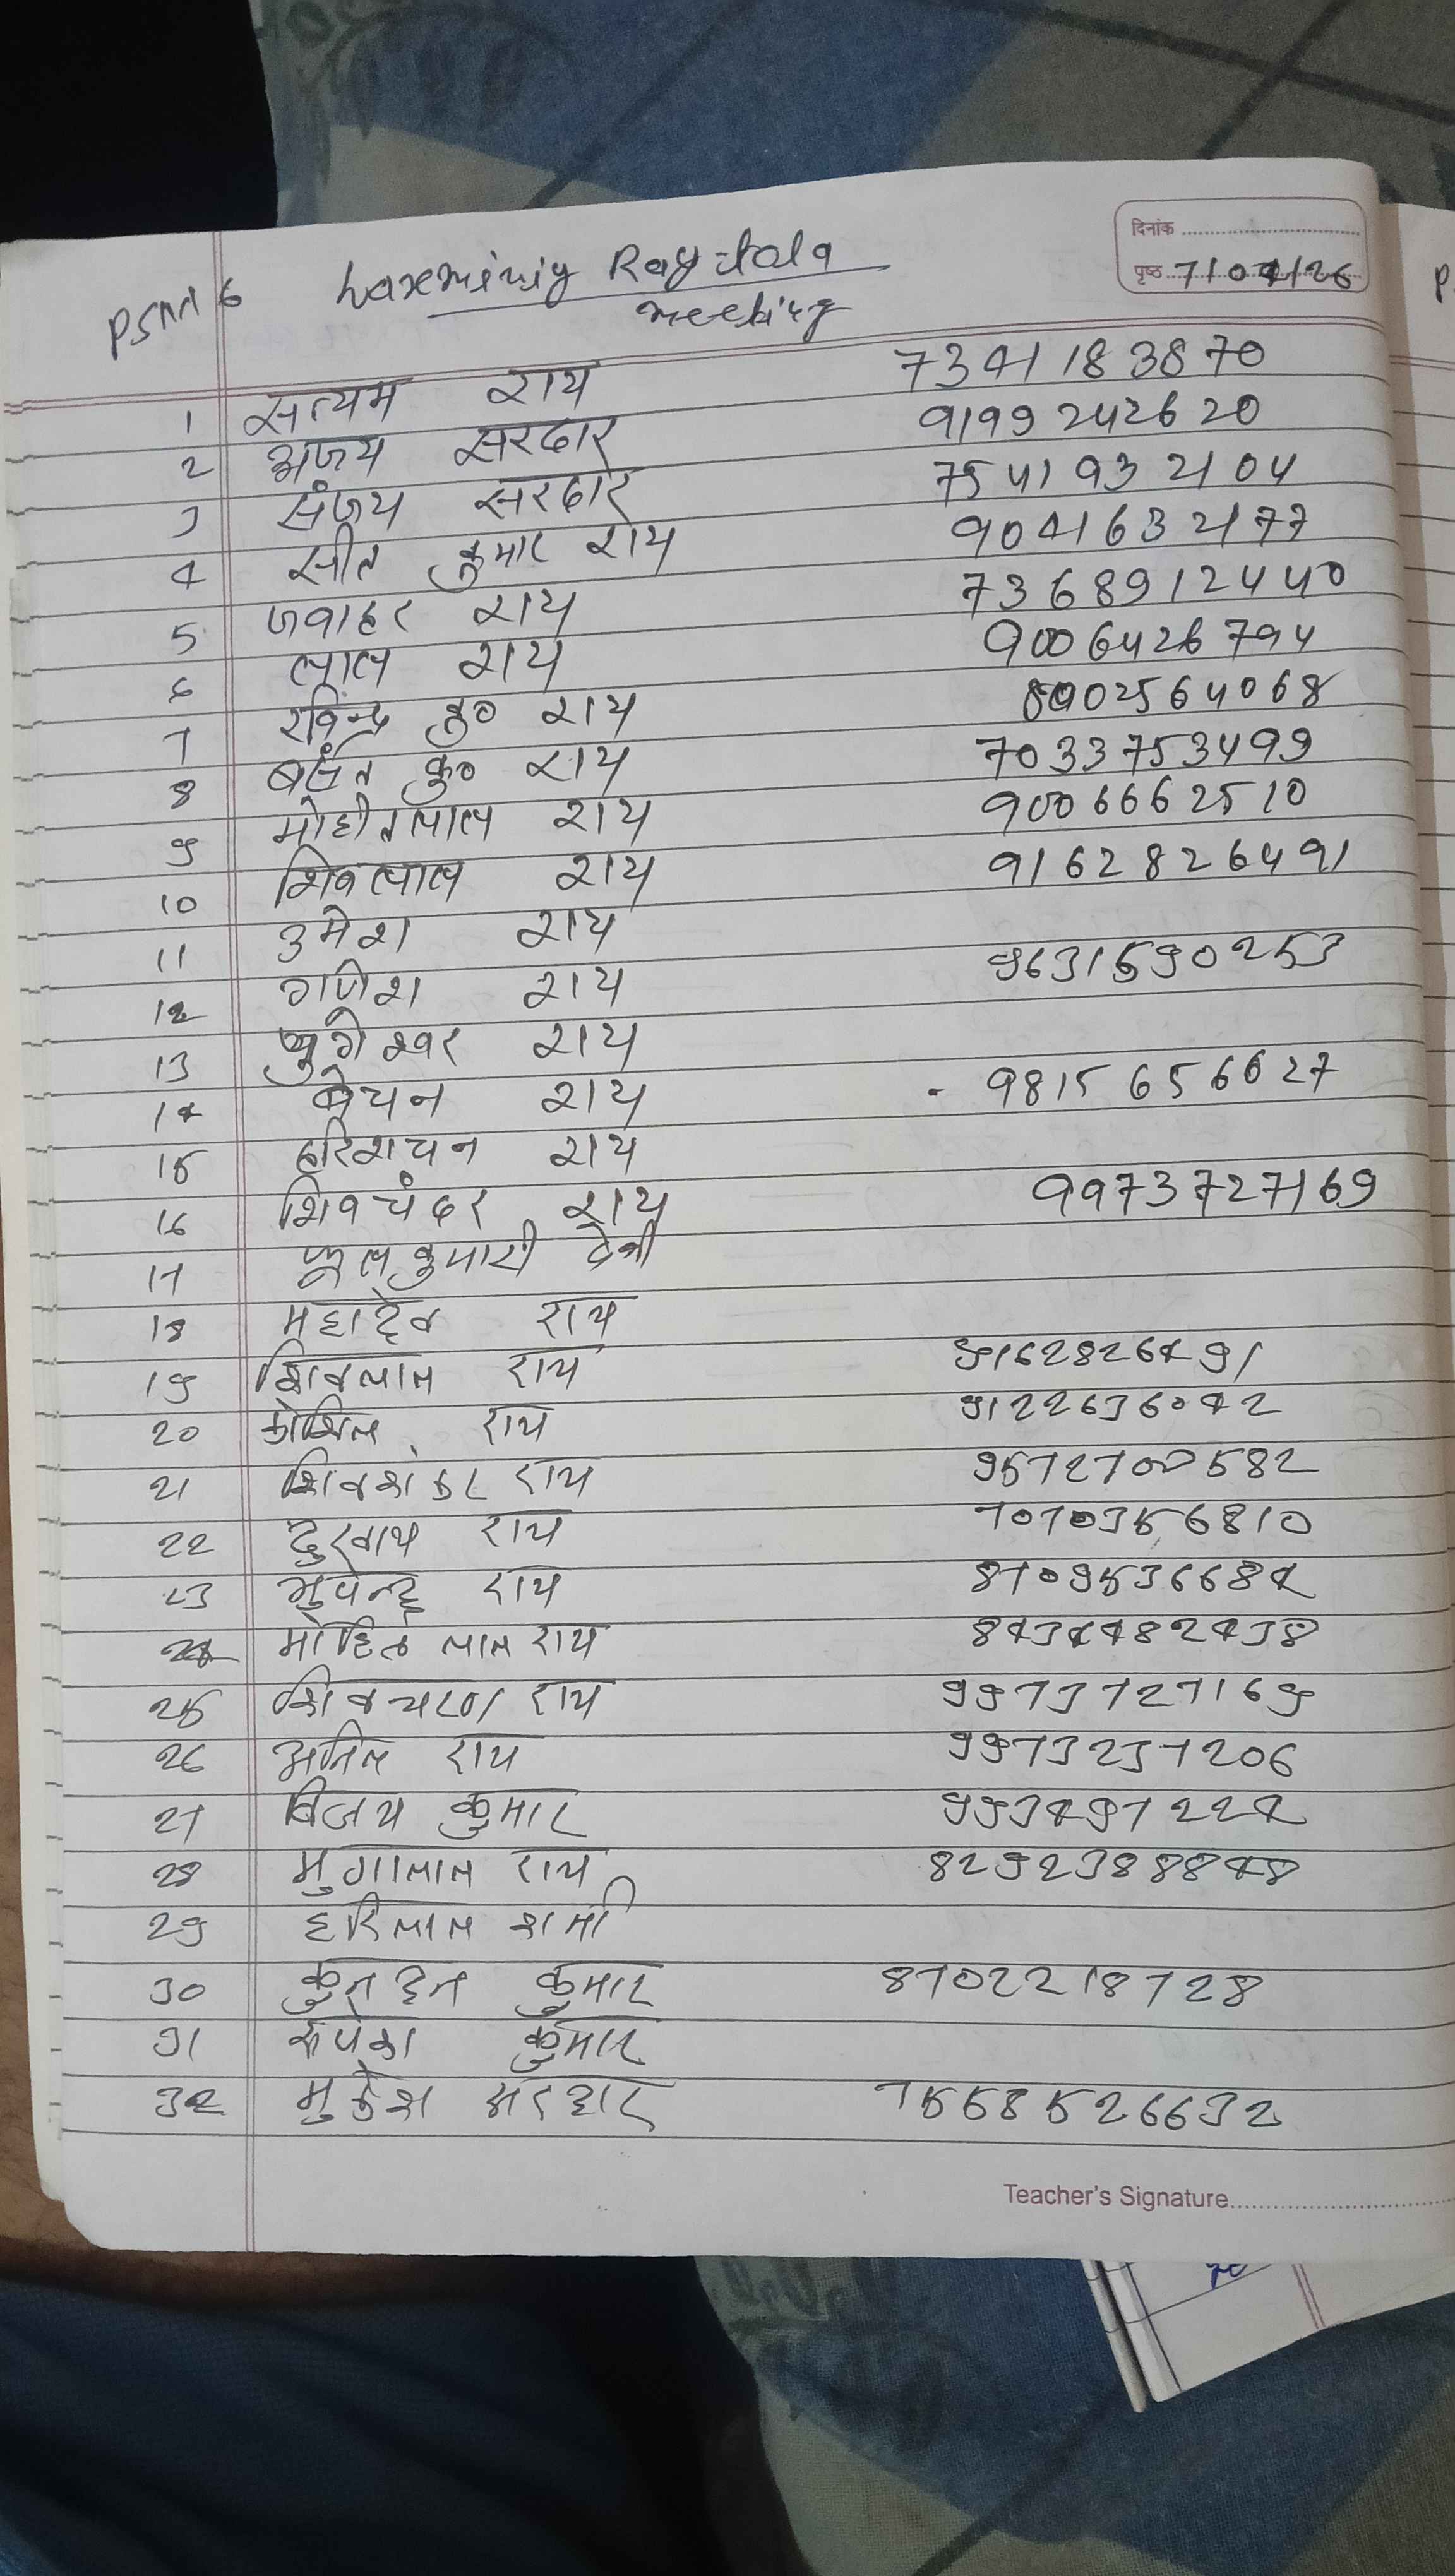 दिनांक
PSNN 6 Laxminiy Ray tola पृष्ठ 7/04/26
meeting
1 सत्यम राय 7341183870
2 अजय सरदार 9199242620
3 संजय सरदार 7541932104
4 सीत कुमार राय 9041632177
5 जवाहर राय 7368912440
6 लाल राय 9006426794
7 रविन्द्र कु० राय 8002564068
8 बसंत कु० राय 7033753499
9 मोहीतलाल राय 9006662510
10 शिवलाल राय 9162826491
11 उमेश राय
12 गणेश राय 9631590253
13 युगेश्वर राय
14 बेचन राय 9815656627
15 हरिशचन राय
16 शिवचंदर राय 9973727169
17 फूलकुमारी देवी
18 महादेव राय
19 शिवलाल राय 9162826491
20 कोशिल राय 9122636042
21 शिवशंकर राय 9572700582
22 राय 7070356810
23 भुपेन्द्र राय 8709536684
24 मोहित लाल राय 8434482438
25 शिवचरण राय 9973727169
26 अनिल राय 9973237206
27 विजय कुमार 9934972224
28 मुगालाल राय 8292388848
29 हरिलाल शर्मा
30 कुन्दन कुमार 8702218728
31 रुपेश कुमार
32 मुकेश सरदार 7558526632
Teacher's Signature